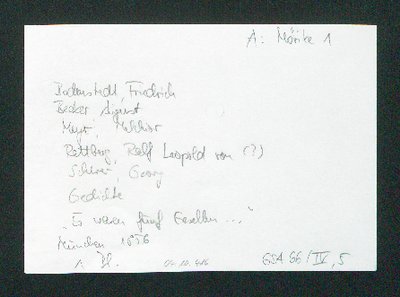 A: Mörike 1
Bodenstedt, Friedrich
Becker, August
Meyr, Melchior
Rettberg, Ralf Leopold von (?)
Scherer, Georg
Gedichte
„Es waren fünf Gesellen ..."
München 1856
1 Bl.
GSA 86/IV, 5